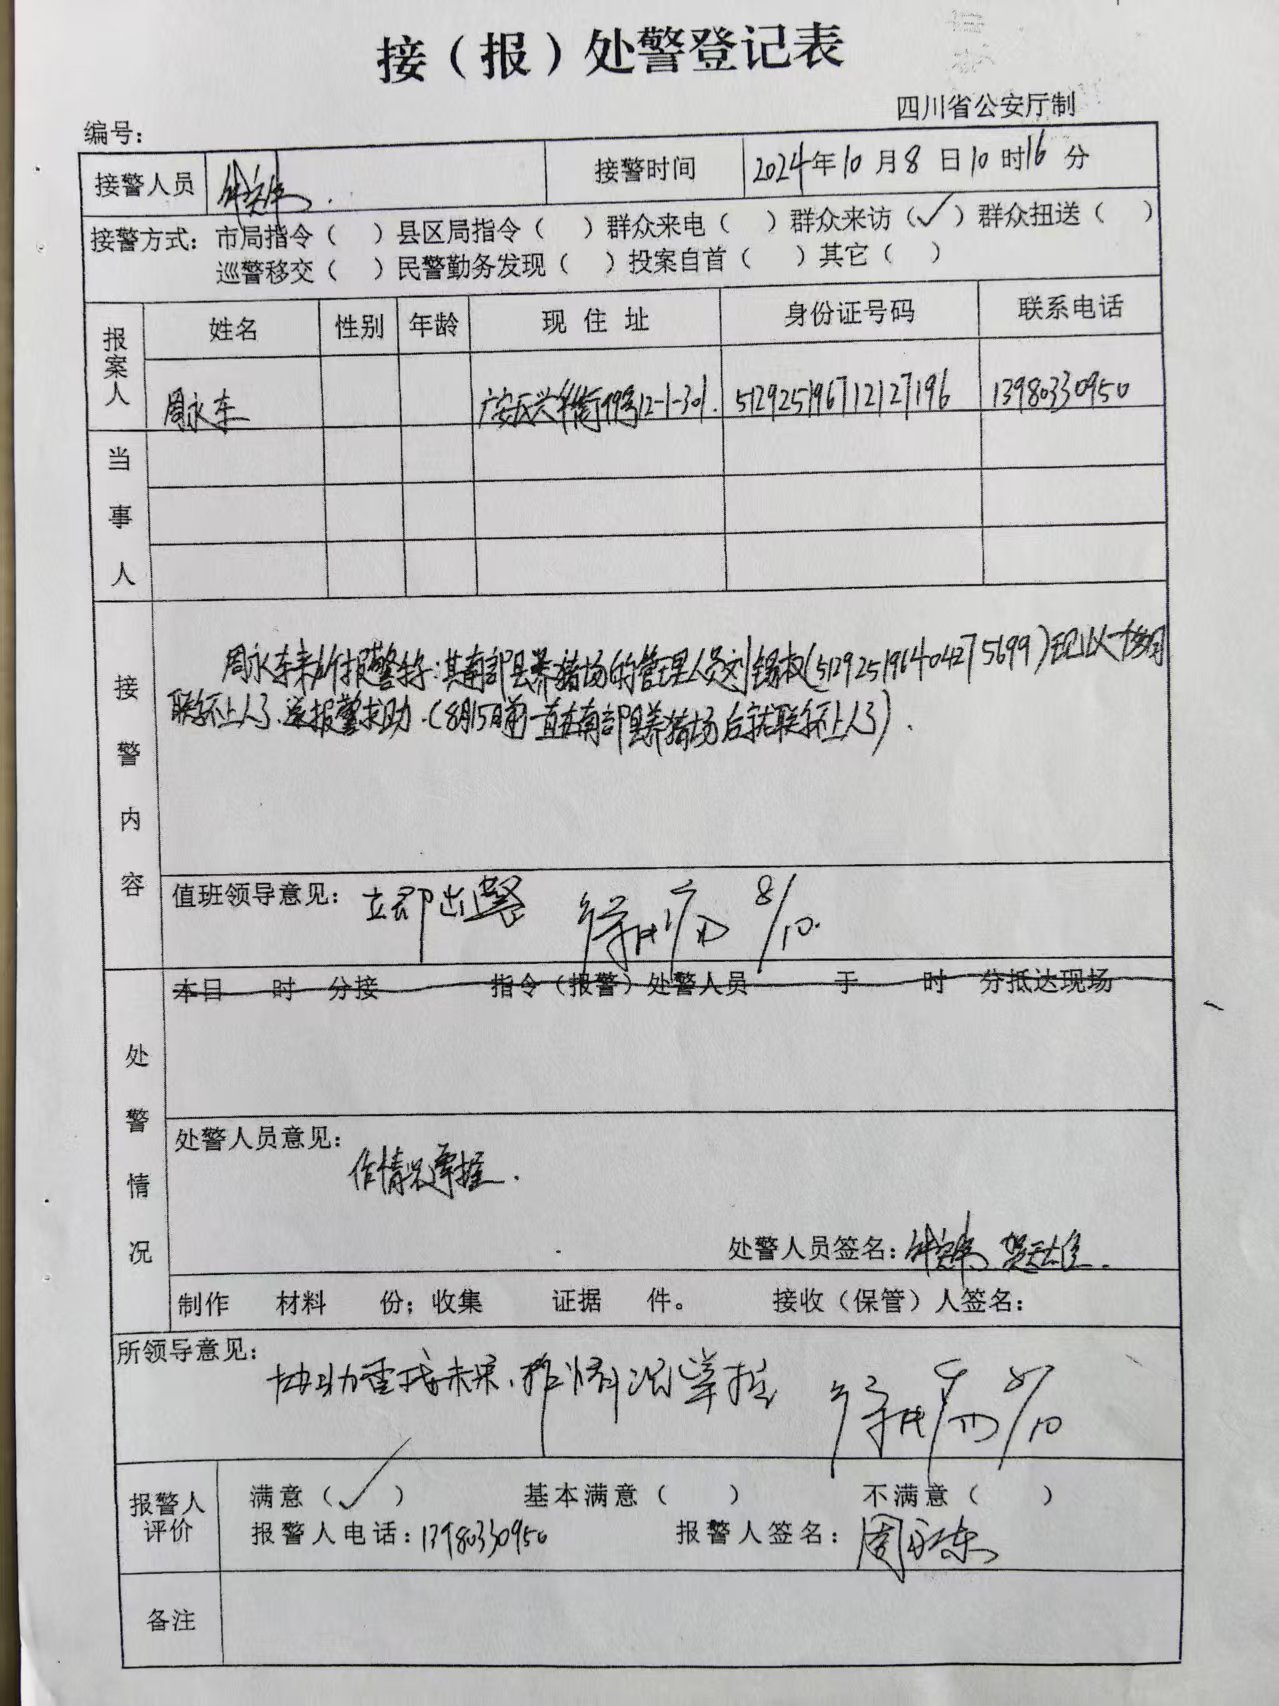 接（报）处警登记表
四川省公安厅制
编号：
接警人员 接警时间 2024年10月8日10时16分
接警方式：市局指令（ ）县区局指令（ ）群众来电（ ）群众来访（✓）群众扭送（ ）
巡警移交（ ）民警勤务发现（ ）投案自首（ ）其它（ ）
报案人 姓名 性别 年龄 现住址 身份证号码 联系电话
周永东 512925196712127196 13980330950
当事人
接警内容
周永东来所报警称：其南部县养猪场的管理人员刘锡权（512925196404275699）现
联系不上人了，遂报警求助．（8月15日前一直在南部县养猪场后就联系不上人了）．
值班领导意见：立即出警 8/10.
处警情况
本日 时 分接 指令（报警）处警人员 于 时 分抵达现场
处警人员意见：
作情况掌握．
处警人员签名：
制作 材料 份；收集 证据 件。 接收（保管）人签名：
所领导意见：
协助查找 8/10
报警人评价 满意（✓） 基本满意（ ） 不满意（ ）
报警人电话：13980330950 报警人签名：周永东
备注